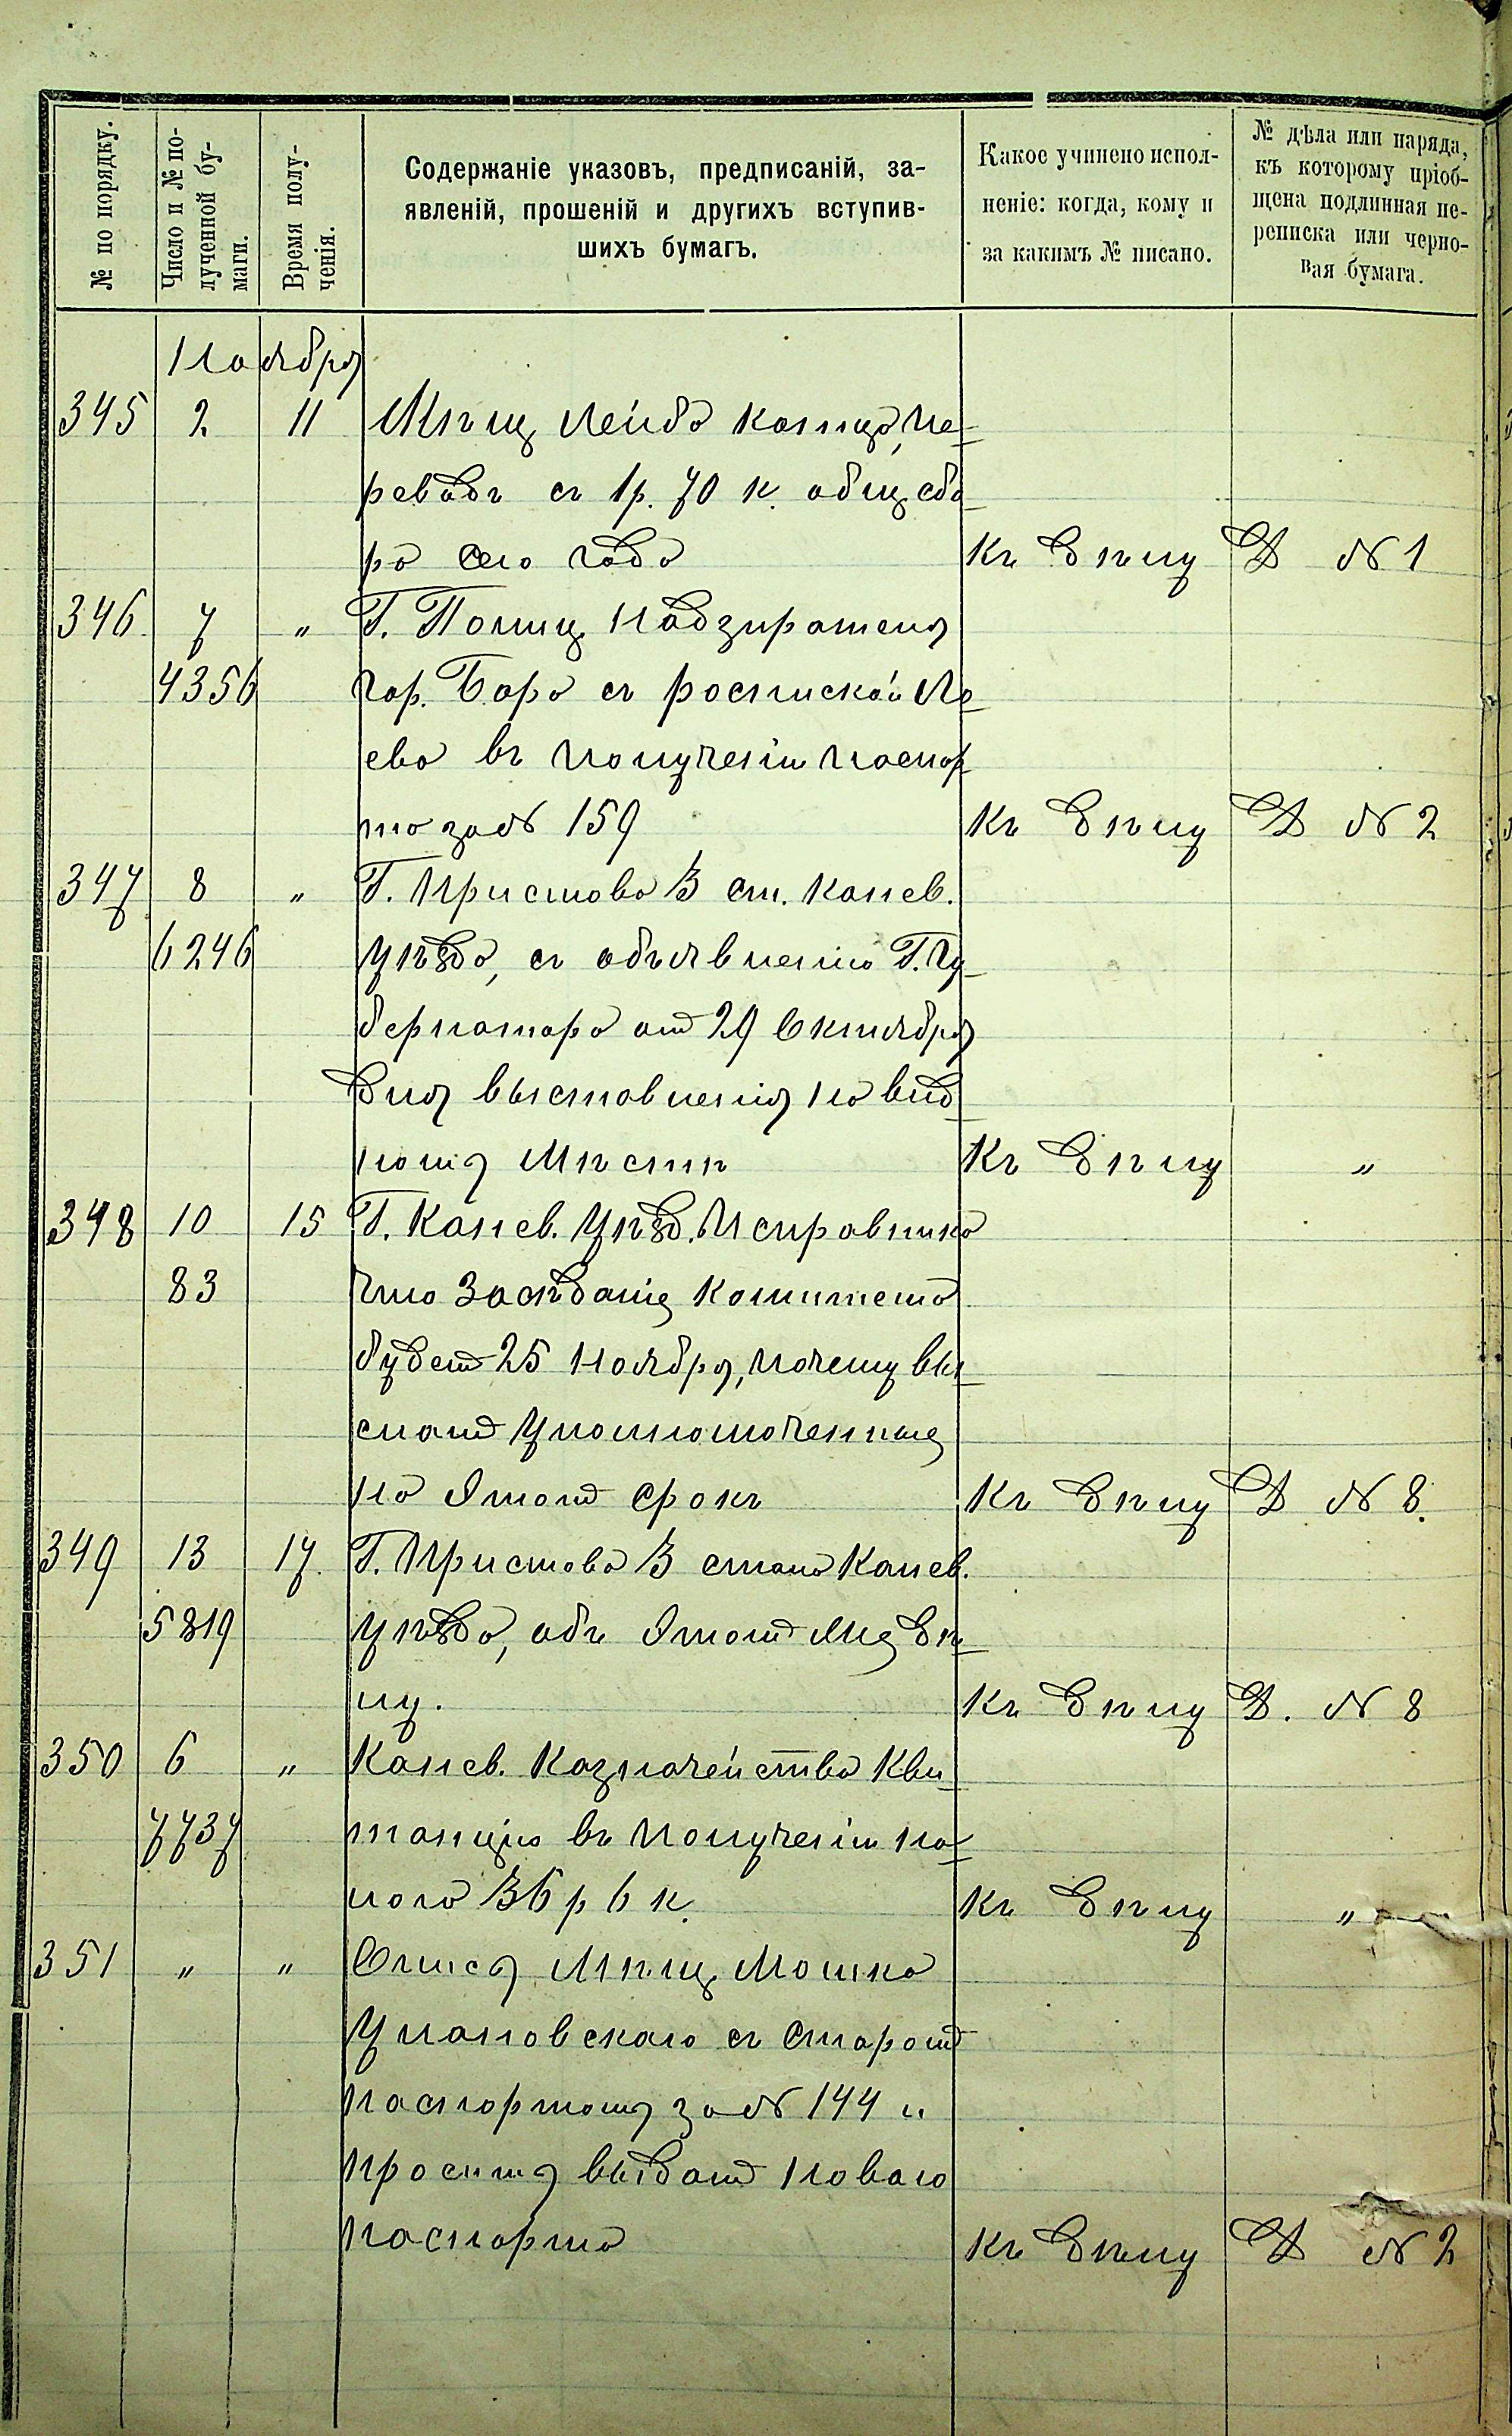 № по порядку.
Число и № по-
лученной бу-
маги.
Время полу-
ченія.
Содержаніе указовъ, предписаній, за-
явленій, прошеній и другихъ вступив-
шихъ бумагъ.
Какое учинено испол-
неніе: когда, кому и
за какимъ № писано.
№ дѣла или наряда,
къ которому пріоб-
щена подлинная пе-
реписка или черно-
вая бумага.
Ноября
345 2 11 Мѣщ. Лейба пе-
реводъ съ 1 р. 70 к. общ. сбо
ра сего года Къ дѣлу Д № 1
346 7 " Г. Полиц. Надзирателя
4356 гор. съ роспиской
въ полученіи паспор
та за № 159 Къ дѣлу Д № 2
347 8 " Г. Пристава 3 ст. Канев.
6246 уѣзда, съ объявленіемъ Г. Гу-
бернатора отъ 29 Октября
для выставленія на вид
номъ Мѣстѣ Къ дѣлу "
348 10 15 Г. Канев. Уѣзд. Исправника
83 что Засѣданіе Комитета
будетъ 25 Ноября, почему вы-
слать Уполномоченныхъ
на этотъ срокъ Къ дѣлу Д № 8.
349 13 17. Г. Пристава 3 стана Канев.
5819 уѣзда, объ этомъ же дѣ-
лу. Къ дѣлу Д. № 8
350 6 " Канев. Казначейства Кви
7737 танцію въ полученіи на-
лога 36 р 6 к. Къ дѣлу "
351 " " Мѣщ. Мошка
Улановскаго съ старымъ
паспортомъ за № 144 и
проситъ выдать новаго
паспорта Къ дѣлу Д № 2